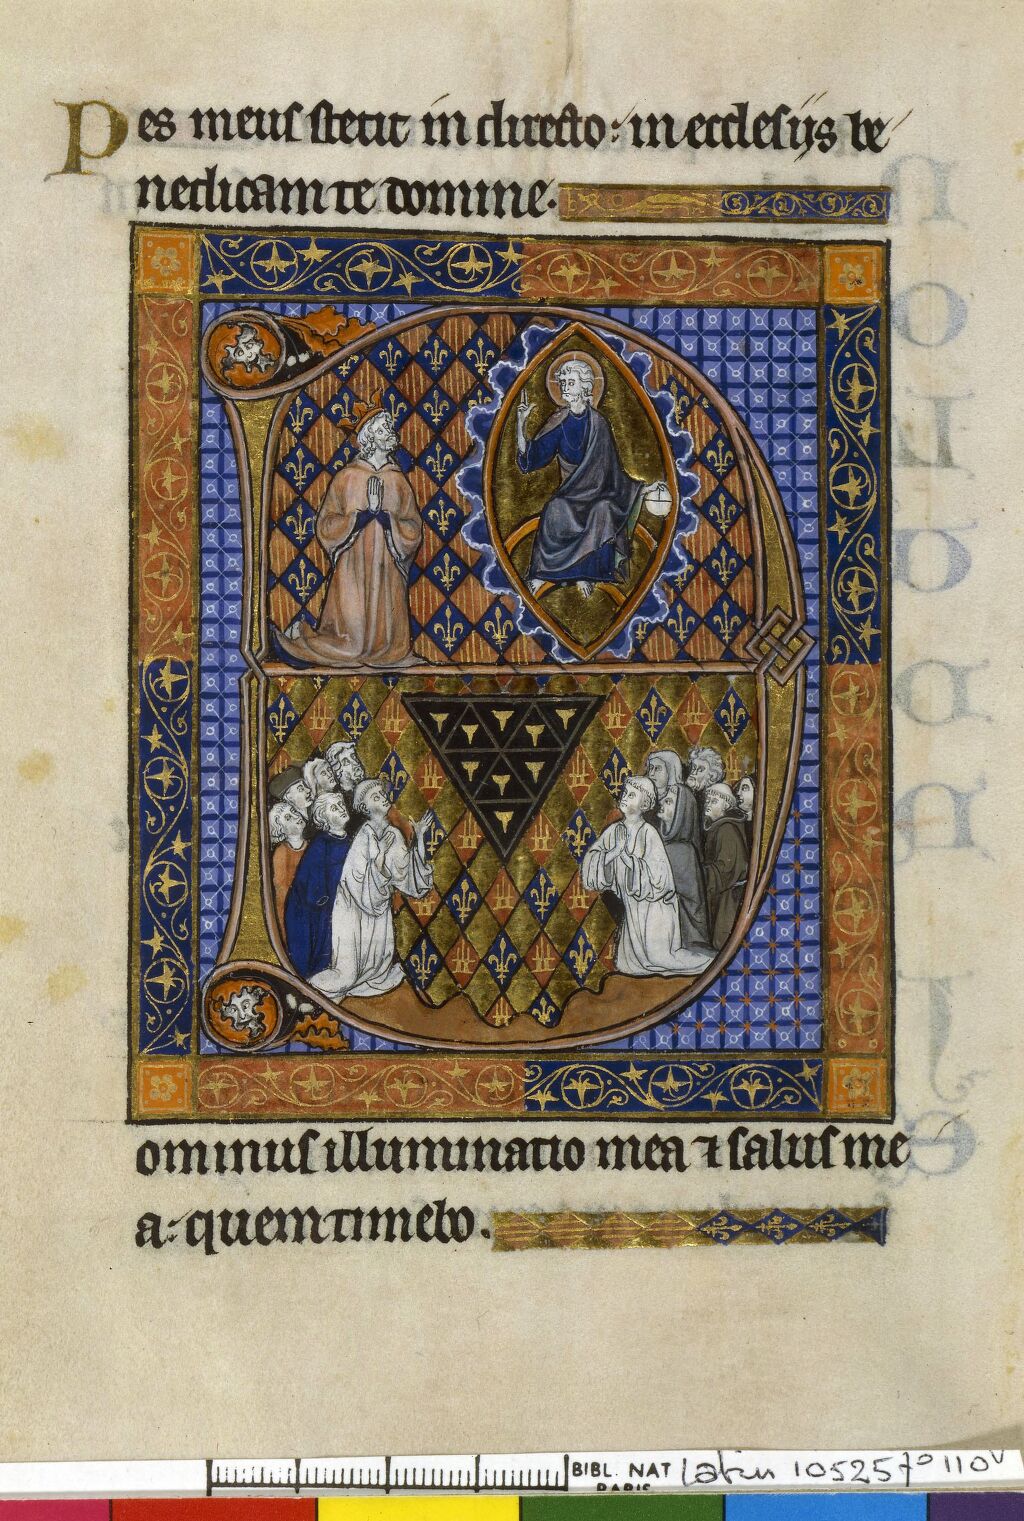 Pes meus stetit in directo: in ecclesijs be
nedicam te domine.
ominus illuminatio mea ⁊ salus me
a: quem timebo.
BIBL. NAT
PARIS
Latin 10525 fo 110v